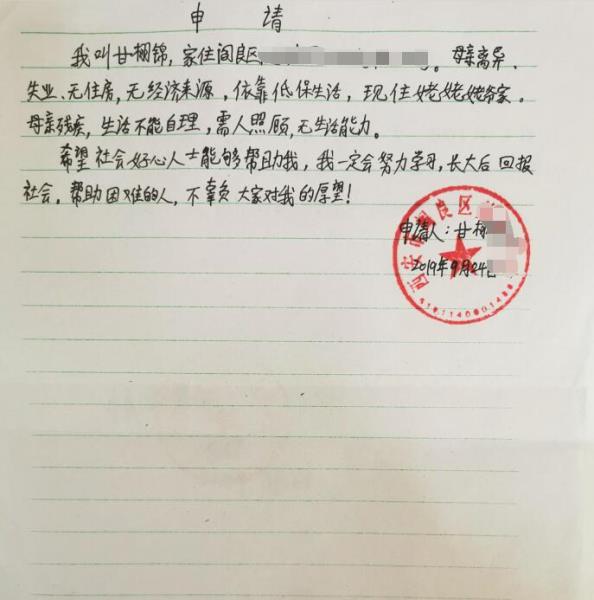 申 请
我叫甘栩锦,家住阎良区。母亲离异、
失业、无住房,无经济来源,依靠低保生活,现住姥姥姥爷家。
母亲残疾,生活不能自理,需人照顾,无生活能力。
希望社会好心人士能够帮助我,我一定会努力学习,长大后回报
社会,帮助困难的人,不辜负大家对我的厚望!
申请人:甘栩
2019年9月24日
西安市阎良区